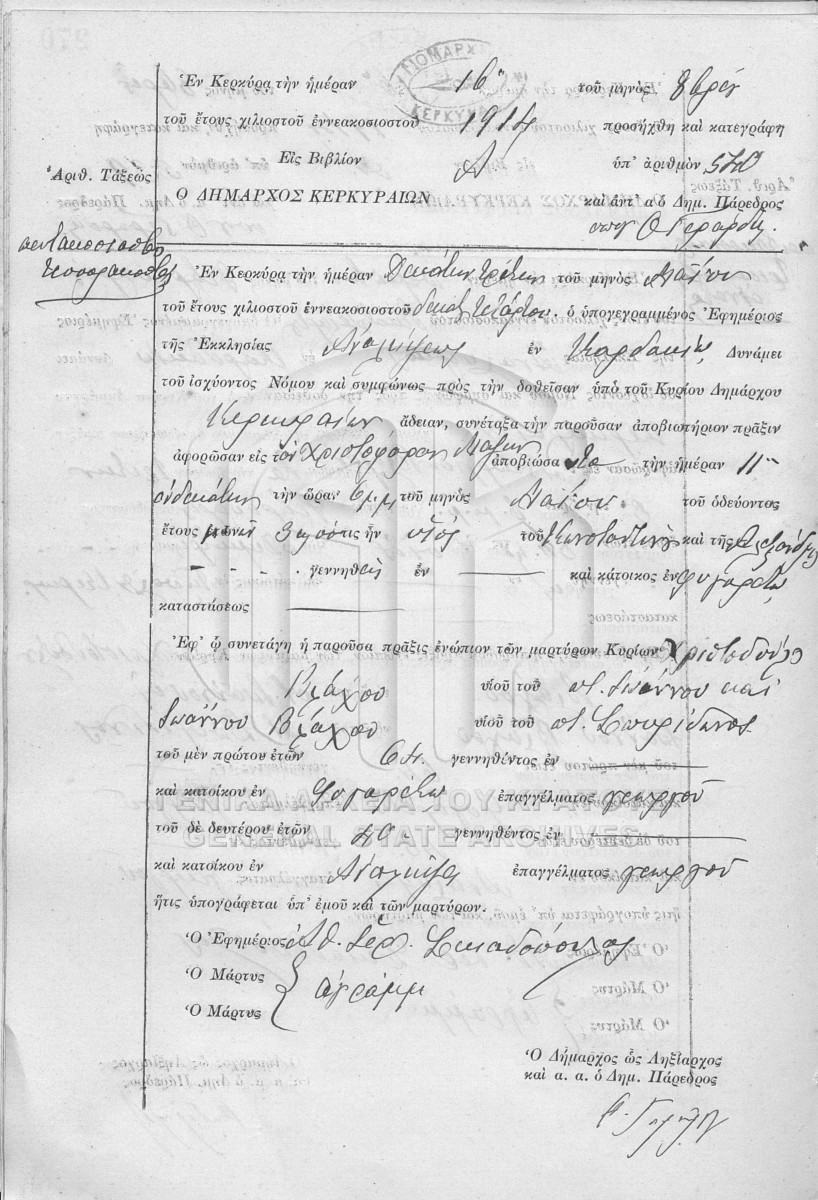 Ἐν Κερκύρᾳ τὴν ἡμέραν 16ην τοῦ μηνὸς 8βρίου
τοῦ ἔτους χιλιοστοῦ ἐννεακοσιοστοῦ 1914 προσήχθη καὶ κατεγράφη
Εἰς Βιβλίον Α ὑπ' ἀριθμὸν
Ἀριθ. Τάξεως
Ο ΔΗΜΑΡΧΟΣ ΚΕΡΚΥΡΑΙΩΝ καὶ ἀντ' α ὁ Δημ. Πάρεδρος
Ἐν Κερκύρᾳ τὴν ἡμέραν Δεκάτην τρίτην τοῦ μηνὸς Μαΐου
τοῦ ἔτους χιλιοστοῦ ἐννεακοσιοστοῦ δεκάτου τετάρτου ὁ ὑπογεγραμμένος Ἐφημέριος
τῆς Ἐκκλησίας Ἀναλήψεως ἐν Δυνάμει
τοῦ ἰσχύοντος Νόμου καὶ συμφώνως πρὸς τὴν δοθεῖσαν ὑπὸ τοῦ Κυρίου Δημάρχου
Κερκυραίων ἄδειαν, συνέταξα τὴν παροῦσαν ἀποβιωτήριον πρᾶξιν
ἀφορῶσαν εἰς τὸν Χριστόφορον Μάζην ἀποβιώσαντα τὴν ἡμέραν 11ην
ἑνδεκάτην τὴν ὥραν 6 μ.μ. τοῦ μηνὸς Μαΐου τοῦ ὁδεύοντος
ἔτους μηνῶν 3 ὅστις ἦν υἱὸς τοῦ Κωνσταντίνου καὶ τῆς Ἀλεξάνδρας
γεννηθεὶς ἐν καὶ κάτοικος ἐν Φυγαρέτῳ
καταστάσεως
Ἐφ' ᾧ συνετάγη ἡ παροῦσα πρᾶξις ἐνώπιον τῶν μαρτύρων Κυρίων Χριστοδούλου
Βλάχου υἱοῦ τοῦ ποτ. Ἰωάννου καὶ
Ἰωάννου Βλάχου υἱοῦ τοῦ ποτ. Σπυρίδωνος
τοῦ μὲν πρώτου ἐτῶν 64 γεννηθέντος ἐν
καὶ κατοίκου ἐν Φυγαρέτῳ ἐπαγγέλματος γεωργοῦ
ΓΕΝΙΚΑ ΑΡΧΕΙΑ ΤΟΥ ΚΡΑΤΟΥΣ
τοῦ δὲ δευτέρου ἐτῶν 40 γεννηθέντος ἐν
GENERAL STATE ARCHIVES
καὶ κατοίκου ἐν ἐπαγγέλματος γεωργοῦ
ἥτις ὑπογράφεται ὑπ' ἐμοῦ καὶ τῶν μαρτύρων.
Ὁ Ἐφημέριος
Ὁ Μάρτυς ἀγράμμ
Ὁ Μάρτυς
Ὁ Δήμαρχος ὡς Ληξίαρχος
καὶ α. α. ὁ Δημ. Πάρεδρος